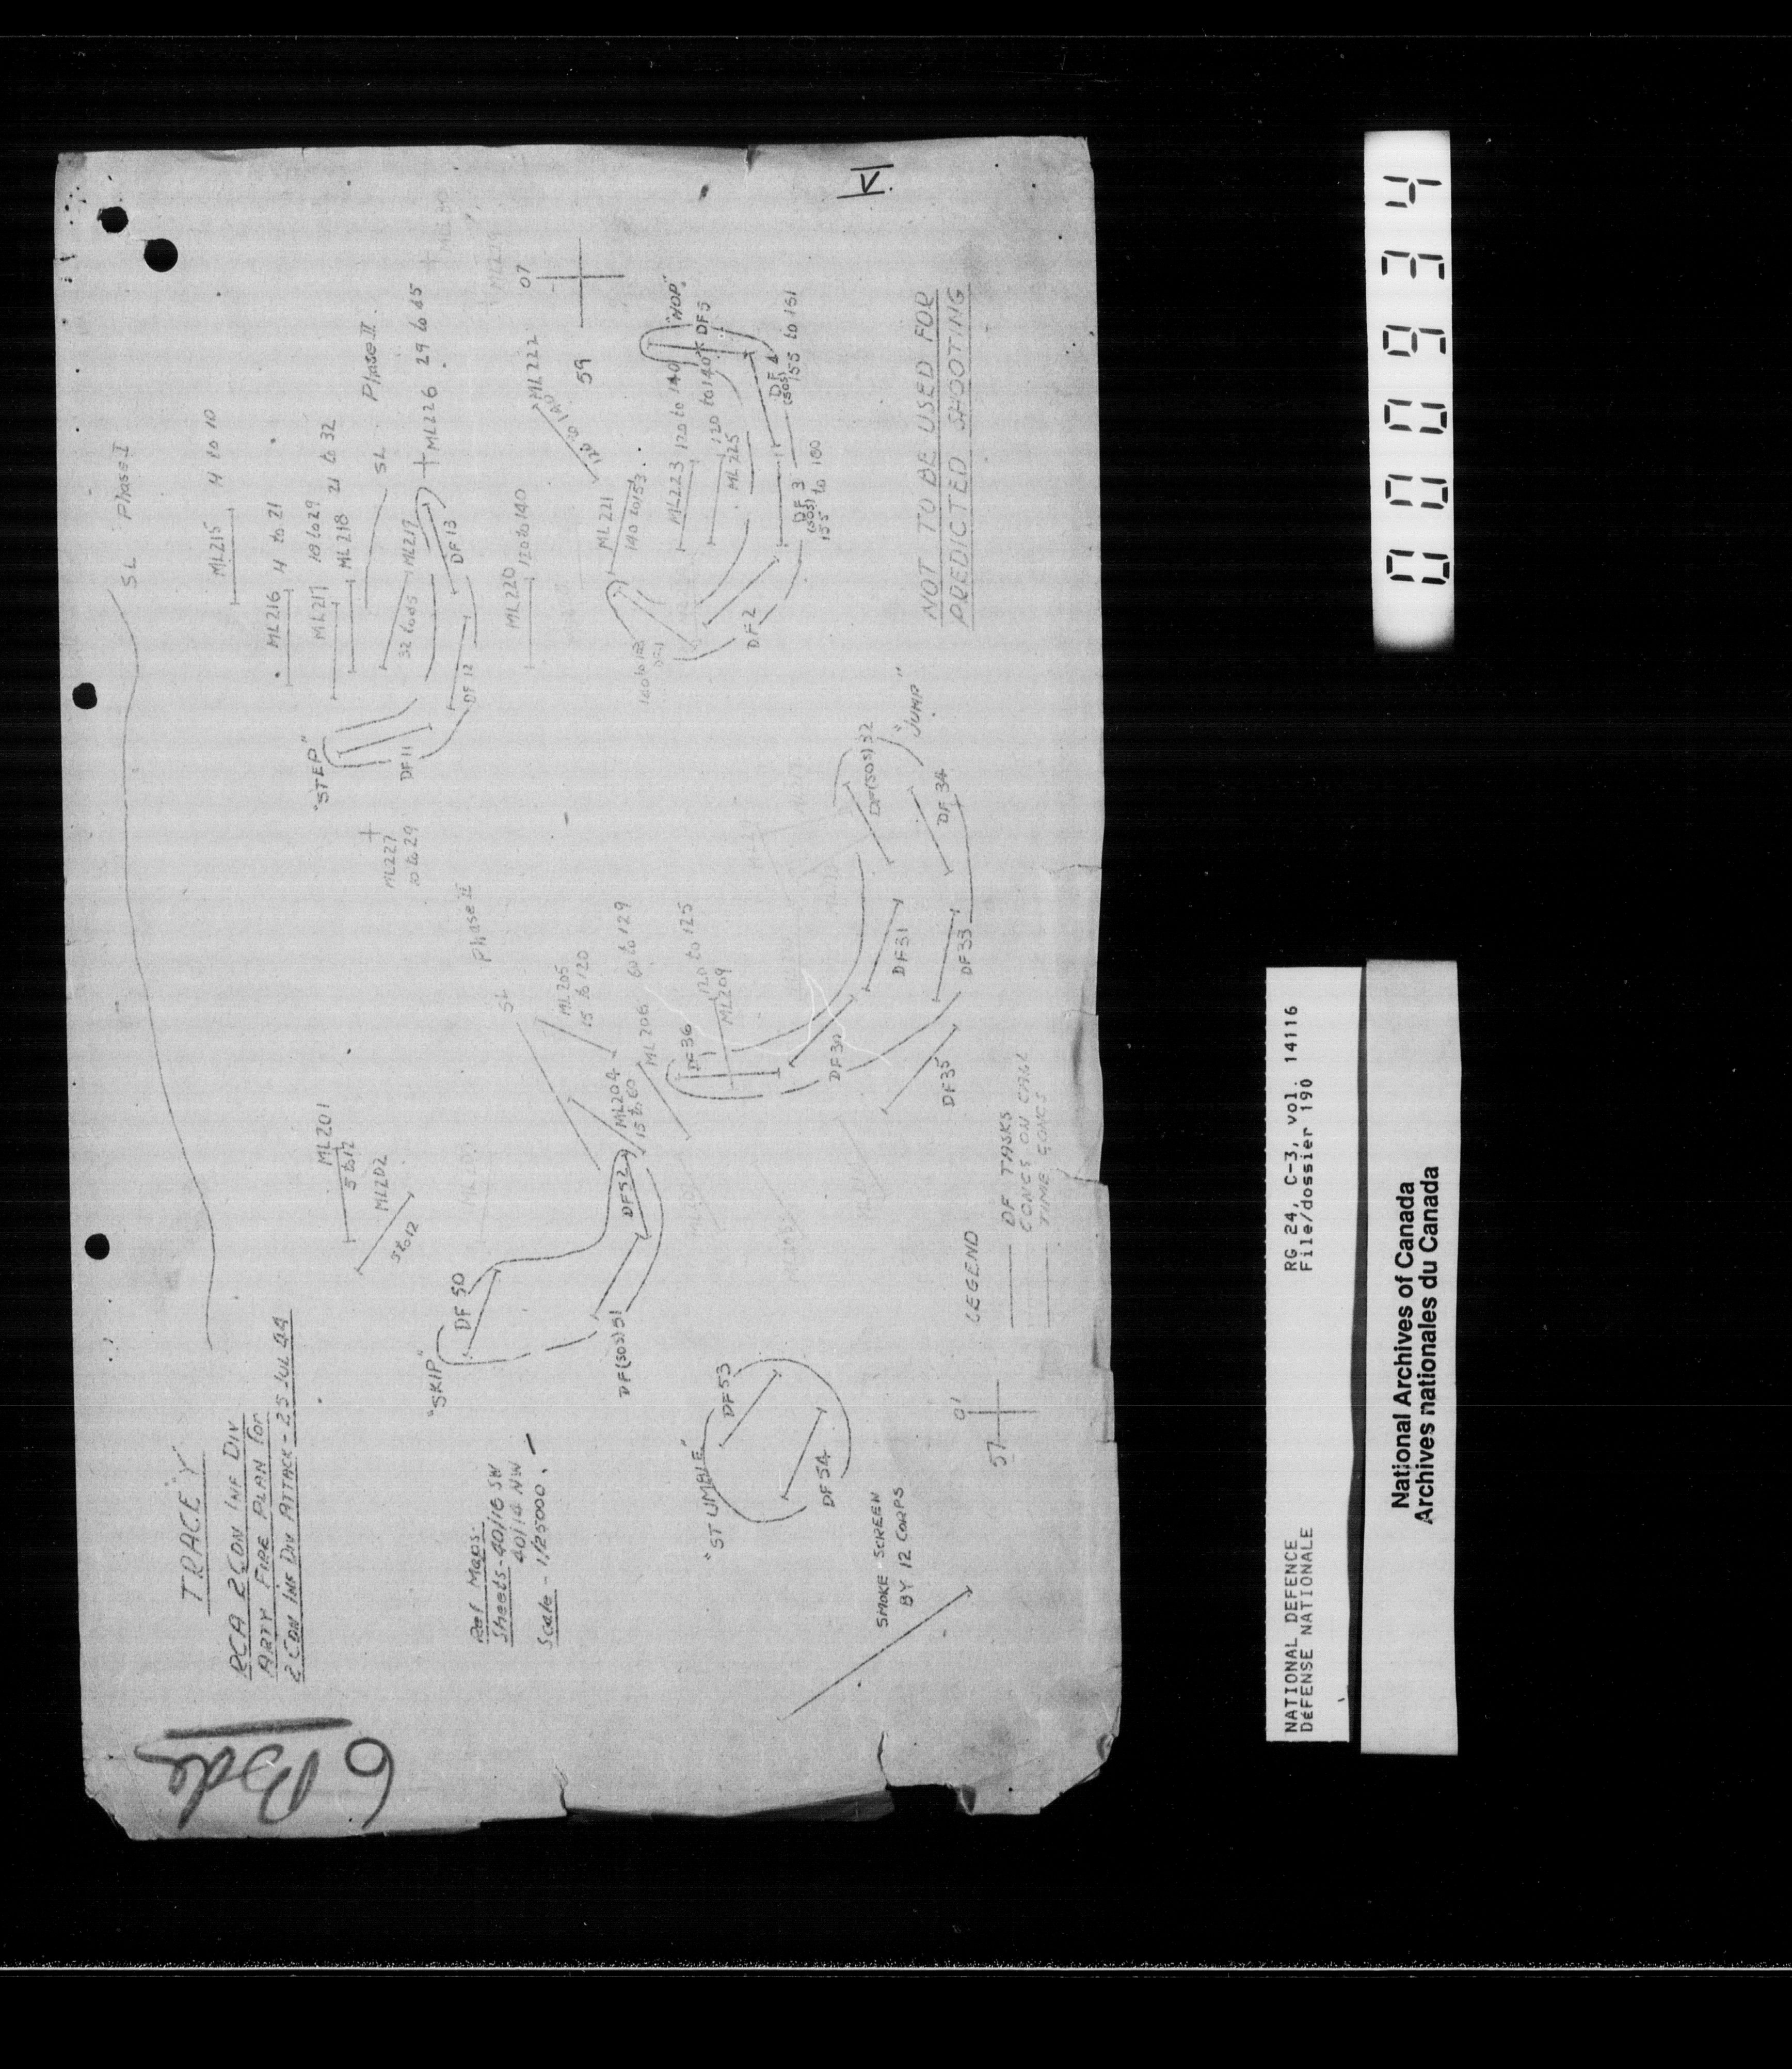 6 Bde
TRACE "Y"
RCA 2 CDN INF DIV
ARTY FIRE PLAN for
2 CDN INF DIV ATTACK - 25 JUL 44
Ref Maps.
Sheets - 40/16 SW
40/14 NW
Scale - 1/25000.
SL Phase I
ML215 4 to 10
ML216 4 to 21
ML217 10 to 29
ML218 21 to 32
SL Phase II.
32 to 65 ML219
ML226 29 to 65
DF 13
DF 12
"STEP"
DF 11
ML227
10 to 29
ML201
5 to 12
ML202
5 to 12
ML229
07
59
ML222
120 to 140
ML220 120 to 140
ML221
140 to 153.
ML223 120 to 140
120 to 140
ML225
"HOP"
DF5
DF 4
(SOS)
155 to 161
DF 3
(SOS)
155 to 180
DF2
DF1
Phase II
SL
ML205
15 to 120
ML204
15 to 60
ML206 60 to 129
120 to 125
ML209
DF36
"SKIP"
DF 50
DF(SOS)51
DF52
"JUMP"
DF(SOS)32
DF 34
DF31
DF33
DF30
DF35
"STUMBLE"
DF53
DF54
SMOKE SCREEN
BY 12 CORPS
57
01
LEGEND
DF TASKS
CONCS ON CALL
TIME CONCS
NOT TO BE USED FOR
PREDICTED SHOOTING
V.
NATIONAL DEFENCE
DÉFENSE NATIONALE
RG 24, C-3, vol. 14116
File/dossier 190
National Archives of Canada
Archives nationales du Canada
0000934